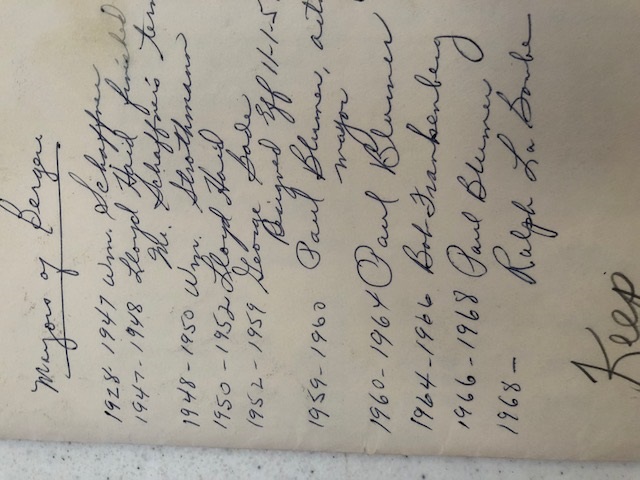 Mayors of Bergen
1928-1947 Wm. Schaffner
1947-1948 Lloyd Haid finished
Mr. Schaffner's term
1948-1950 Wm. Strothmann
1950-1952 Lloyd Haid
1952-1959 George Sade
Resigned Eff 11-1-5
1959-1960 Paul Blumer,
mayor
1960-1964 Paul Blumer
1964-1966 Bob Frankenberg
1966-1968 Paul Blumer
1968- Ralph La Bombe
Keep